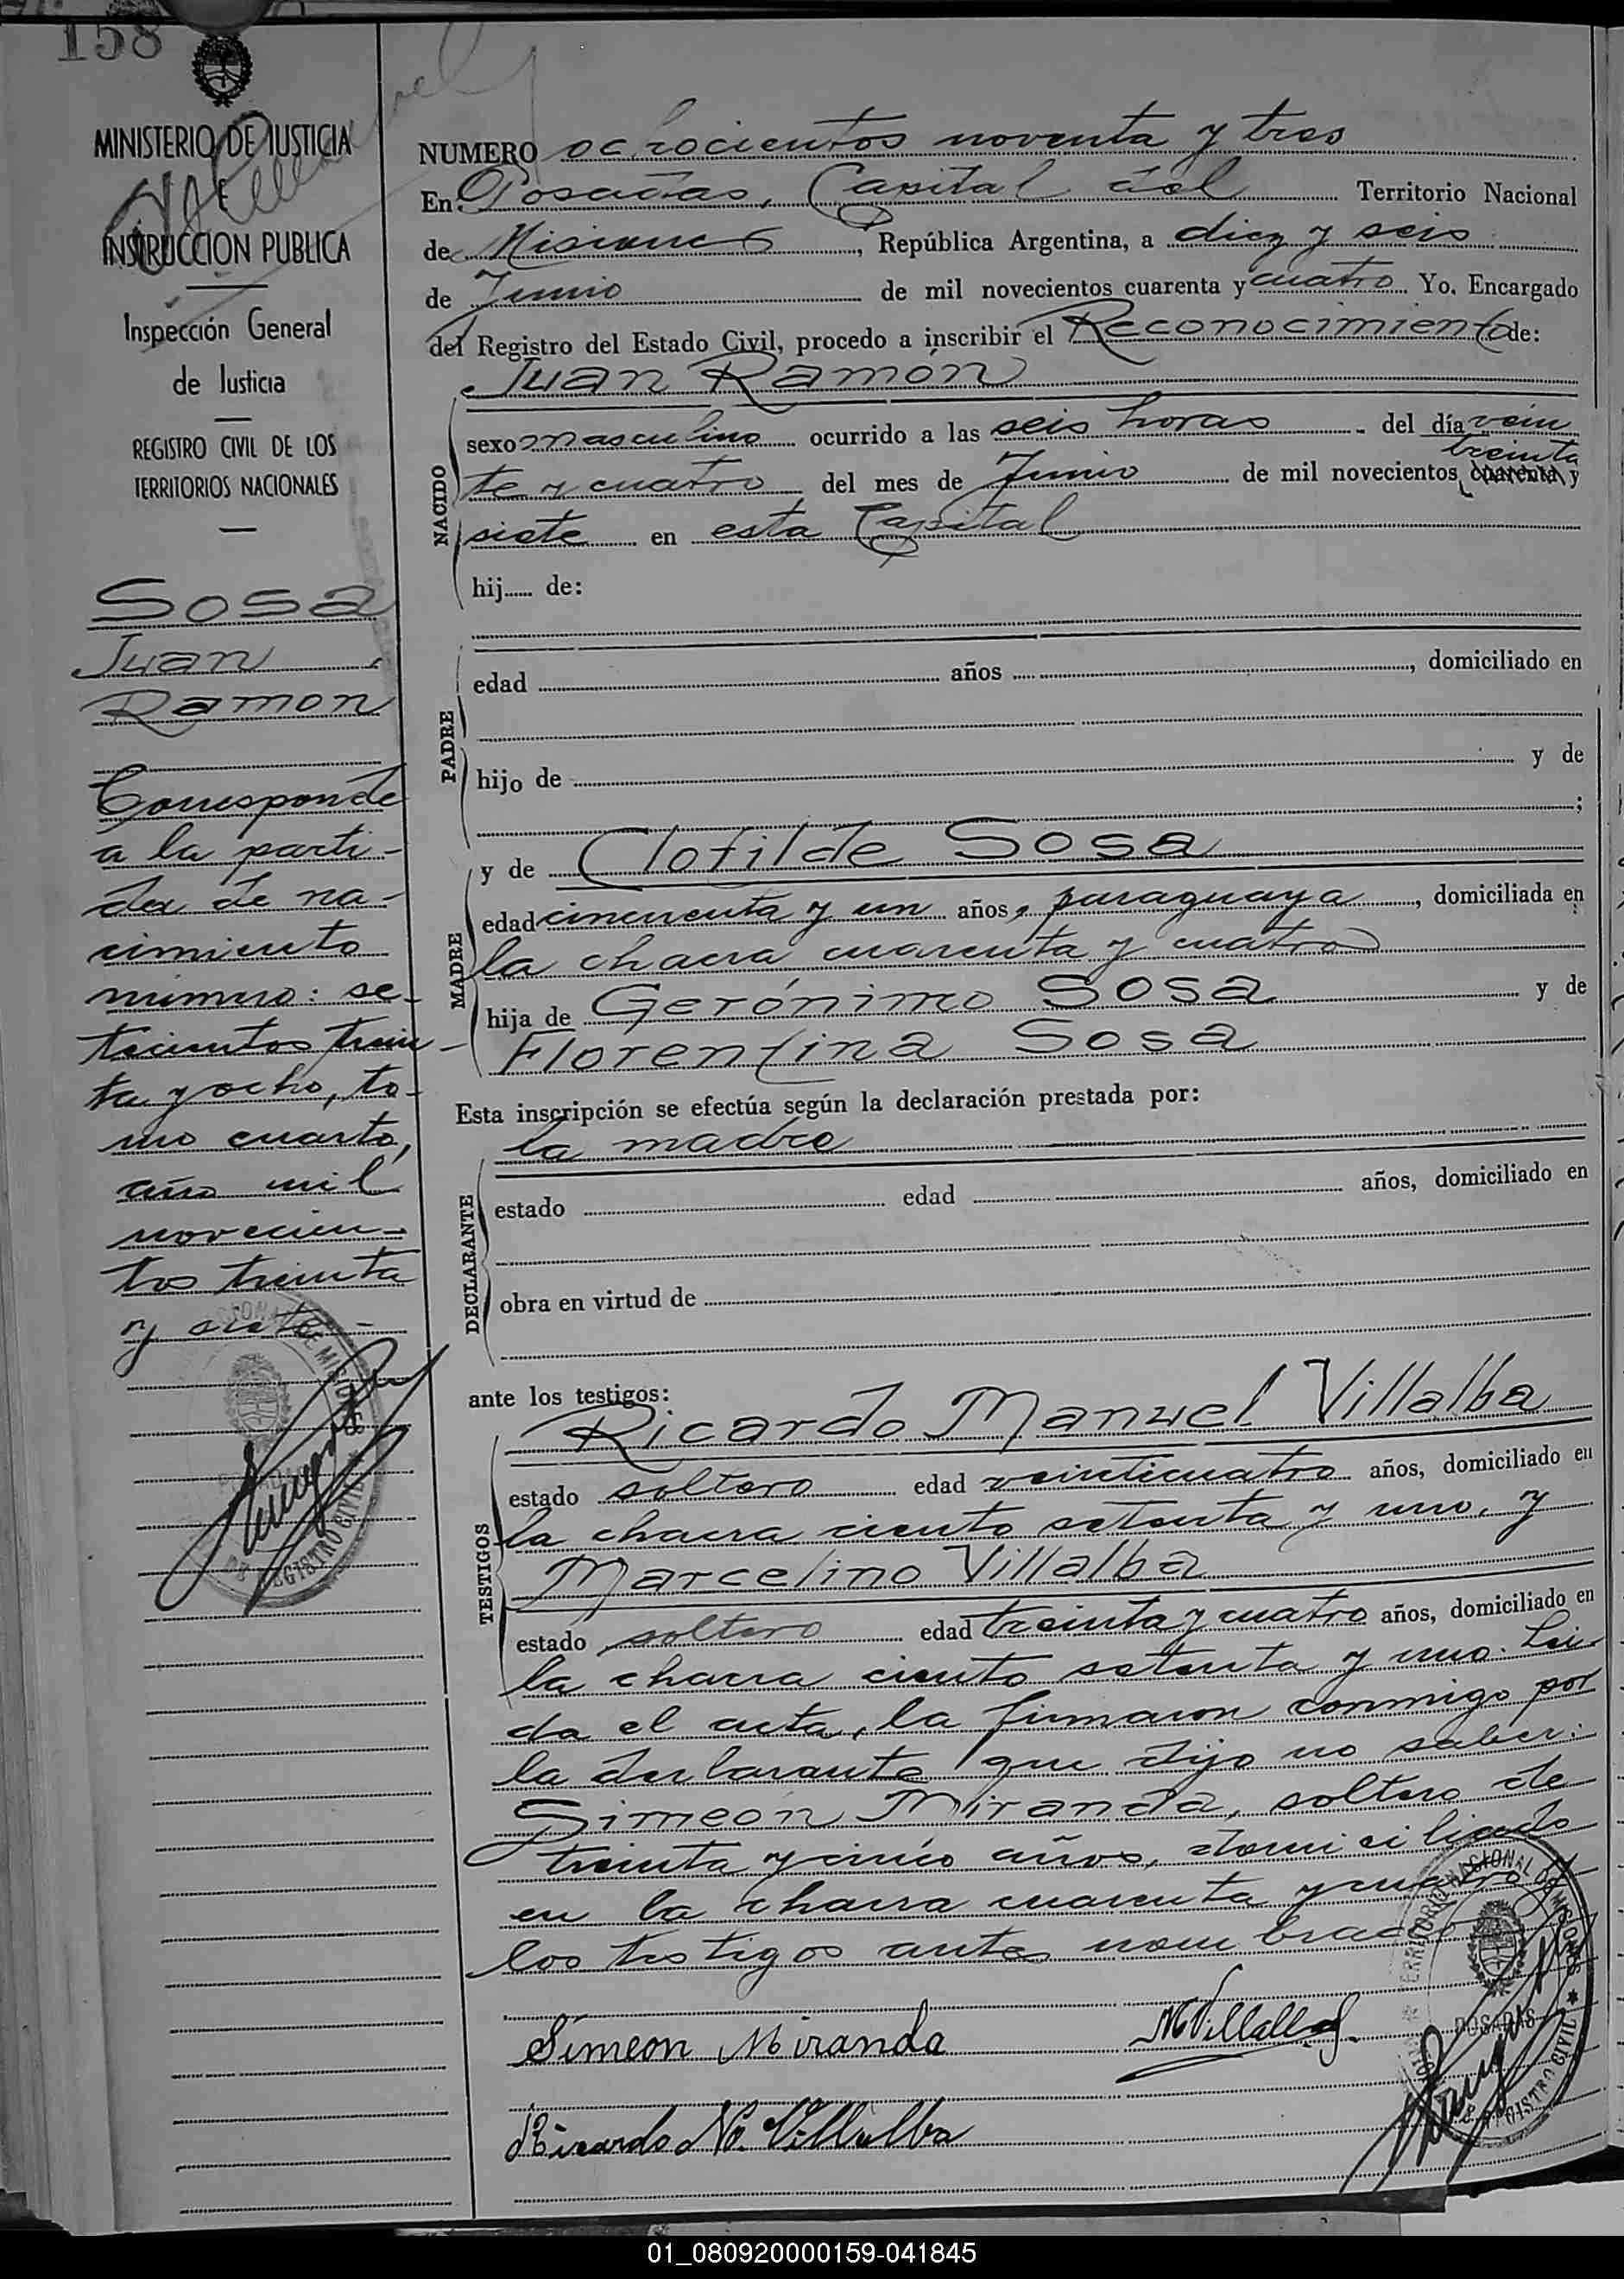 158
MINISTERIO DE JUSTICIA
E
INSTRUCCION PUBLICA
Inspección General
de Justicia
REGISTRO CIVIL DE LOS
TERRITORIOS NACIONALES
Sosa
Juan
Ramon
Corresponde
a la parti-
da de na-
cimiento
número: se-
tecientos trein-
ta y ocho, to-
mo cuarto,
año mil
novecien-
tos treinta
y siete.-
NUMERO ochocientos noventa y tres
En Posadas, Capital del Territorio Nacional
de Misiones, República Argentina, a diez y seis
de Junio de mil novecientos cuarenta y cuatro Yo. Encargado
del Registro del Estado Civil, procedo a inscribir el Reconocimiento de:
Juan Ramón
NACIDO
sexo masculino ocurrido a las seis horas del día vein
treinta
te y cuatro del mes de Junio de mil novecientos cuarenta y
siete en esta Capital
hij...... de:
PADRE
edad años , domiciliado en
hijo de y de
;
MADRE
y de Clotilde Sosa
edad cincuenta y un años, paraguaya, domiciliada en
la chacra cuarenta y cuatro
hija de Gerónimo Sosa y de
Florentina Sosa
Esta inscripción se efectúa según la declaración prestada por:
la madre
DECLARANTE
estado edad años, domiciliado en
obra en virtud de
ante los testigos:
Ricardo Manuel Villalba
TESTIGOS
estado soltero edad veinticuatro años, domiciliado en
la chacra ciento setenta y uno, y
Marcelino Villalba
estado soltero edad treinta y cuatro años, domiciliado en
la chacra ciento setenta y uno. Leí-
da el acta, la firmaron conmigo por
la declarante que dijo no saber:
Simeón Miranda, soltero de
treinta y cinco años, domiciliado
en la chacra cuarenta y cuatro y
los testigos antes nombrados
Simeon Miranda
M Villalba
Ricardo M. Villalba
TERRITORIO NACIONAL DE MISIONES
POSADAS
REGISTRO CIVIL
01_080920000159-041845